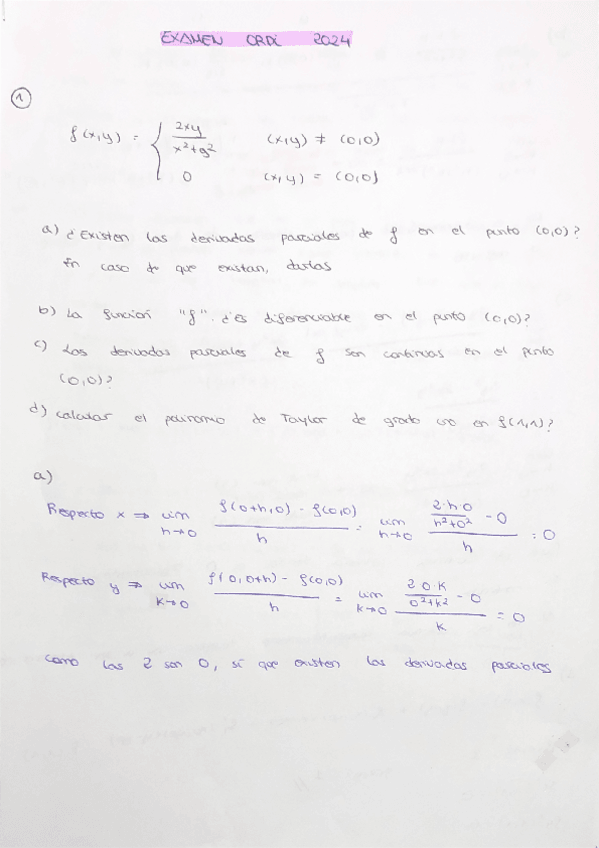 EXAMEN ORDI 2024
1
f(x,y) = { 2xy / x²+y² (x,y) ≠ (0,0)
0 (x,y) = (0,0)
a) ¿Existen las derivadas parciales de f en el punto (0,0)?
En caso de que existan, darlas
b) La función "f" ¿es diferenciable en el punto (0,0)?
c) Las derivadas parciales de f son continuas en el punto
(0,0)?
d) calcular el polinomio de Taylor de grado uno en f(1,1)?
a)
Respecto x ⇒ lim h→0 f(0+h,0) - f(0,0) / h = lim h→0 (2·h·0 / h²+0² - 0) / h = 0
Respecto y ⇒ lim k→0 f(0,0+h) - f(0,0) / h = lim k→0 (2·0·k / 0²+k² - 0) / k = 0
como las 2 son 0, sí que existen las derivadas parciales